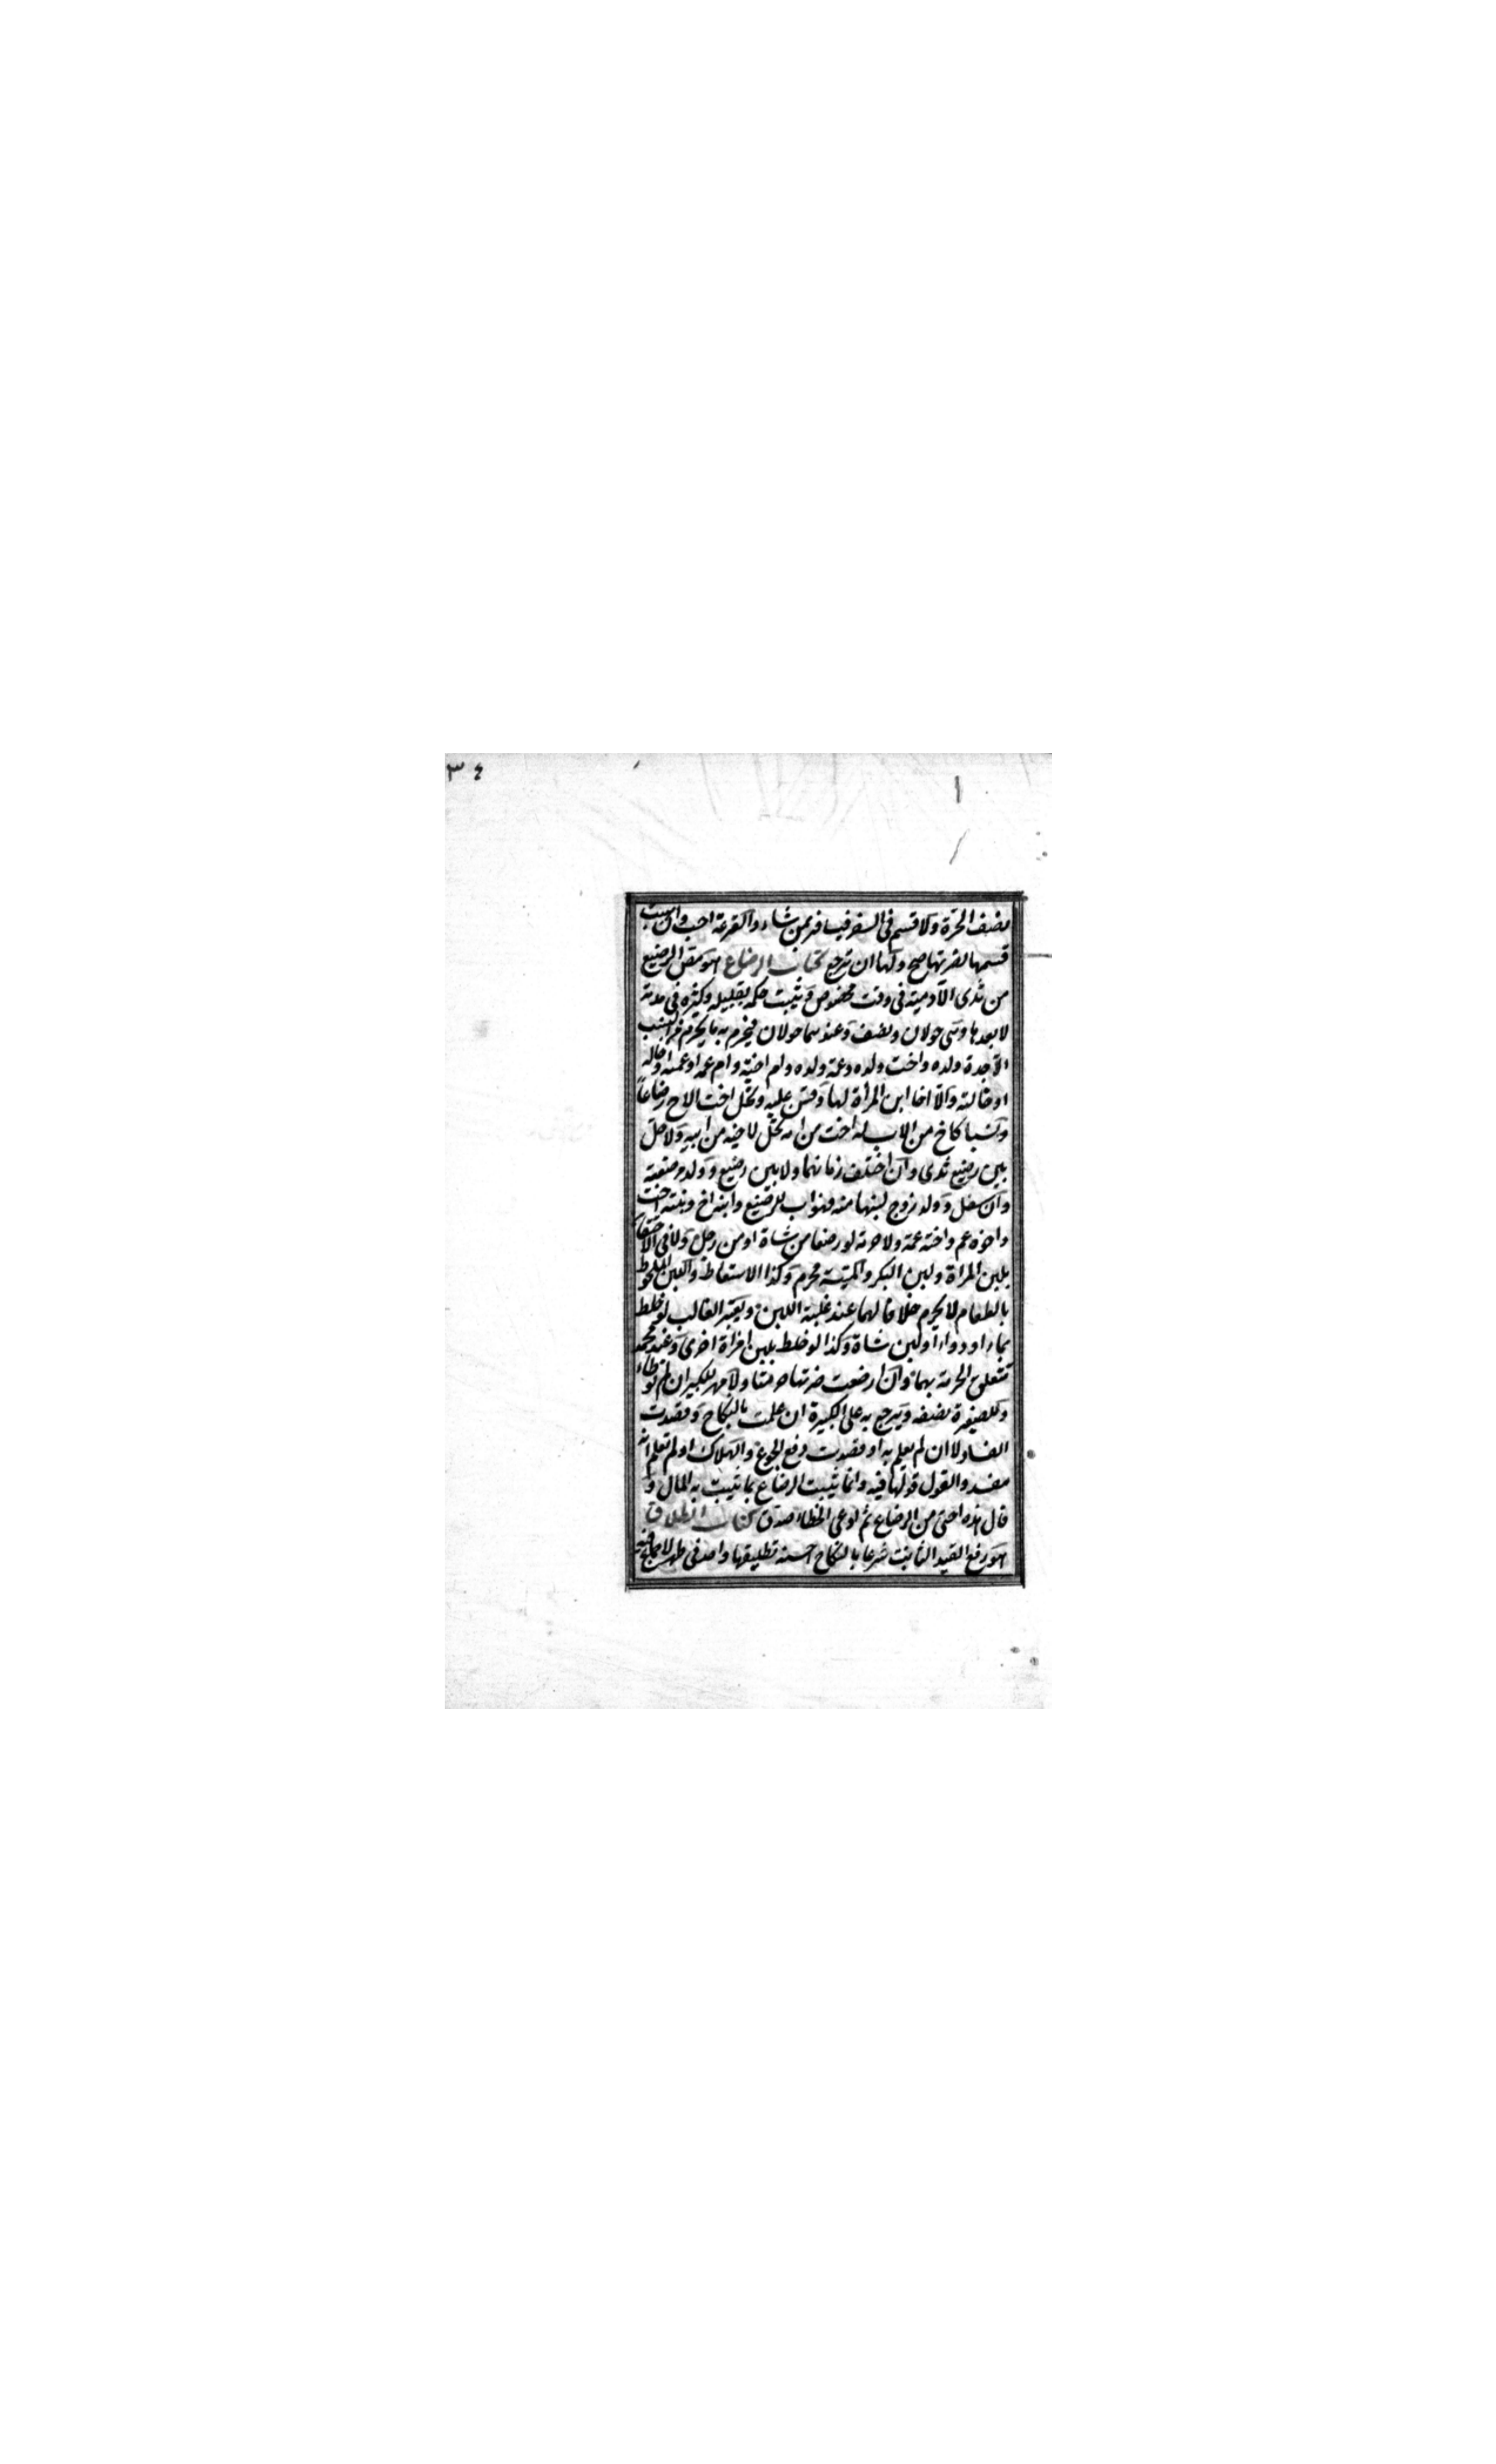 ٣٤
نصف الحرة ولا قسم فى السفر فيسافر بمن شاء والقرعة احب وان وهبت
قسمها لضرتها صح ولها ان ترجع كتاب الرضاع هو مص الرضيع
من ثدى الآدمية فى وقت مخصوص ويثبت حكمه بقليله وكثيره فى مدته
لا بعدها وهى حولان ونصف وعندهما حولان فيحرم به ما يحرم من النسب
الا جدة ولده واخت ولده وعمة ولده وام اخيه وام عمه او عمته او خاله
او خالته والا اخا ابن المرأة لها وقس عليه وتحل اخت الاخ رضاعا
ونسبا كاخ من الاب له اخت من امه تحل لاخيه من ابيه ولا حل
بين رضيع ثدى وان اختلف زمانهما ولا بين رضيع وولد مرضعته
وان سفل وولد زوج لبنها منه فهو اب للرضيع وابنه اخ وبنته اخت
واخوه عم واخته عمة ولا حرمة لو رضعا من شاة او من رجل ولا فى الاحتقان
بلبن المرأة ولبن البكر والميتة محرم وكذا الاستعاط واللبن المخلوط
بالطعام لا يحرم خلافا لهما عند غلبة اللبن ويعتبر الغالب لو خلط
بماء او دواء او لبن شاة وكذا لو خلط بلبن امرأة اخرى وعند محمد
تتعلق الحرمة بهما وان ارضعت ضرتها حرمتا ولا مهر للكبيرة ان لم توطأ
وللصغيرة نصفه ويرجع به على الكبيرة ان علمت بالنكاح وقصدت
الفساد لا ان لم تعلم به او قصدت دفع الجوع والهلاك او لم تعلم انه
مفسد والقول قولها فيه وانما يثبت الرضاع بما يثبت به المال و
قال هذه اختى من الرضاع ثم ادعى الخطاء صدق كتاب الطلاق
هو رفع القيد الثابت شرعا بالنكاح احسنه تطليقها واحدة فى طهر لا جماع فيه